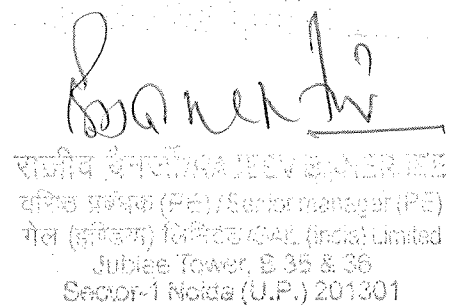 राजीव बैनर्जी/RAJEEV BANERJEE
वरिष्ठ प्रबंधक (PE) / Senior manager (PE)
गेल (इण्डिया) लिमिटेड/GAIL (India) Limited
Jubilee Tower, B 35 & 36
Sector-1 Noida (U.P.) 201301